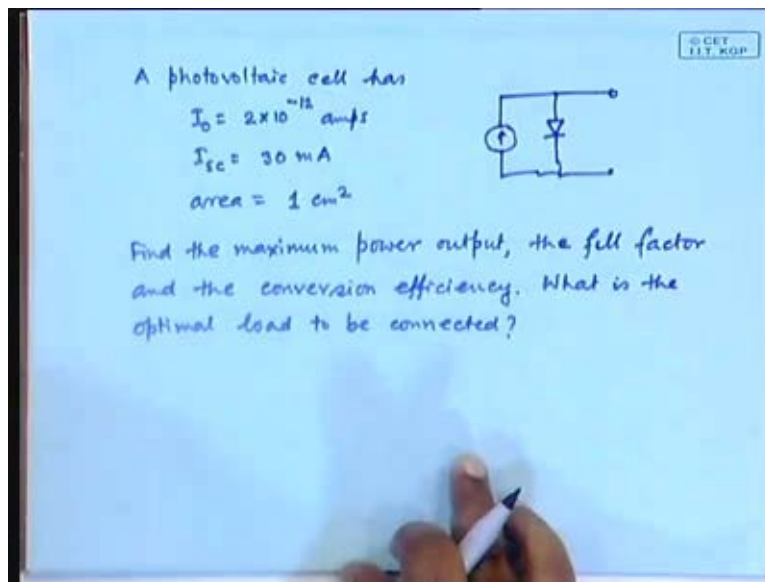 © CET
I.I.T. KGP
A photovoltaic cell has
I₀ = 2×10⁻¹² amps
Isc = 30 mA
area = 1 cm²
Find the maximum power output, the fill factor
and the conversion efficiency. What is the
optimal load to be connected?